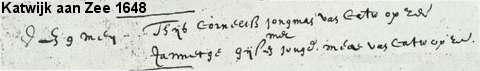 Katwijk aan Zee 1648
9 meij Thijs Corneliss jongman van Catw op zee
met
Jannetge Gijses jonge. mede van Catw op ze.